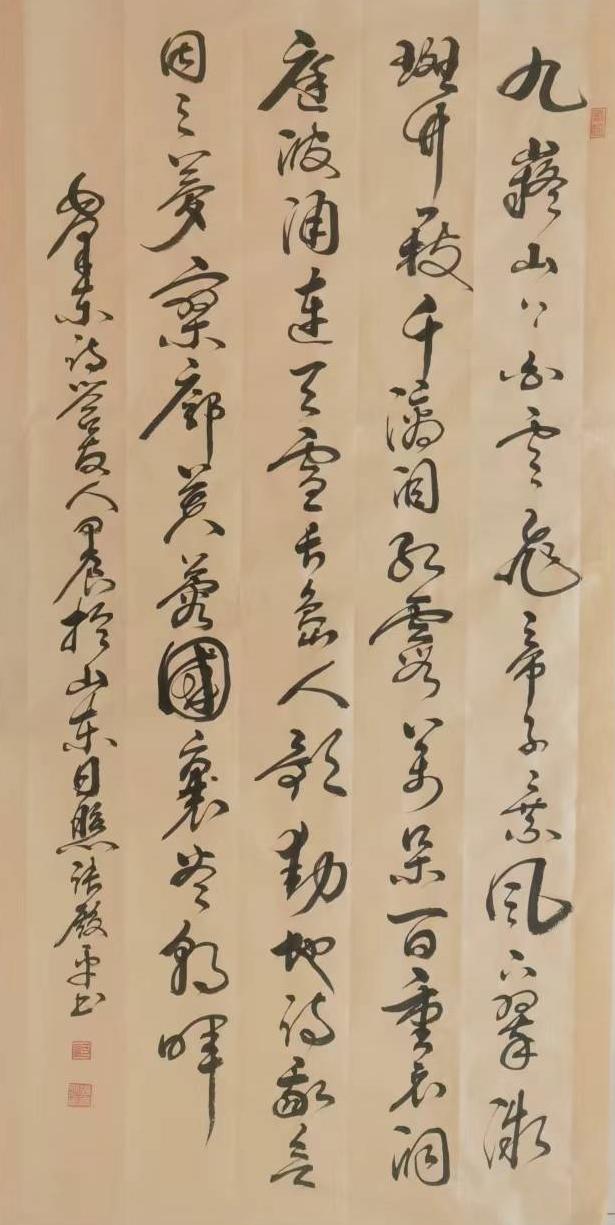 九嶷山上白云飛帝子乘风下翠微
斑竹一枝千滴泪红霞萬朵百重衣洞
庭波涌连天雪长岛人歌动地诗我欲
因之夢寥廓芙蓉國裏尽朝暉
毛泽东诗答友人 於山东日照 书